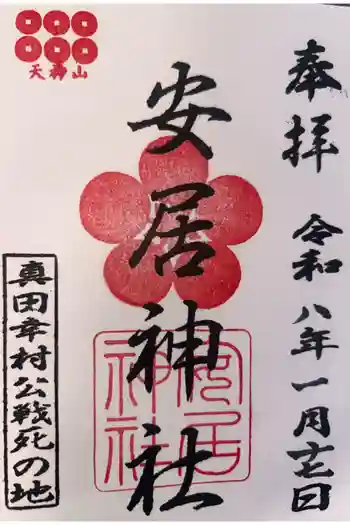 奉拝
令和八年一月十七日
安居神社
安居神社
天神山
真田幸村公戦死の地